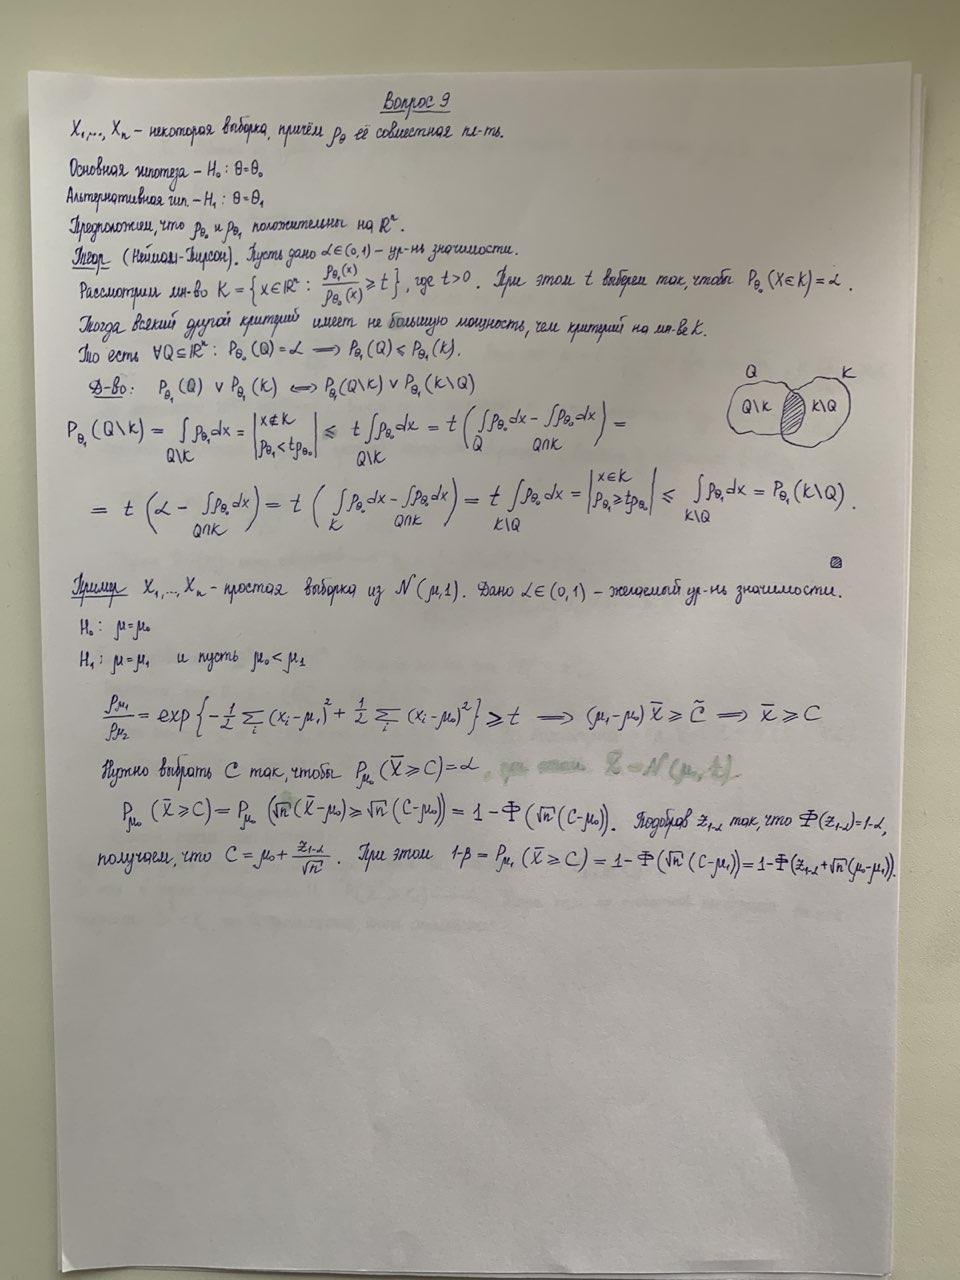 Вопрос 9
X₁,..., Xₙ – некоторая выборка, причём ρ_θ её совместная пл-ть.
Основная гипотеза – H₀: θ=θ₀
Альтернативная гип. – H₁: θ=θ₁
Предположим, что ρ_θ₀ и ρ_θ₁ положительны на ℝⁿ.
Теор (Нейман-Пирсон). Пусть дано α∈(0,1) – ур-нь значимости.
Рассмотрим мн-во K = {x∈ℝⁿ : ρ_θ₁(x)/ρ_θ₀(x) ≥ t}, где t>0. При этом t выберем так, чтобы P_θ₀(X∈K)=α.
Тогда всякий другой критерий имеет не большую мощность, чем критерий на мн-ве K.
То есть ∀Q⊆ℝⁿ: P_θ₀(Q)=α ⟹ P_θ₁(Q) ≤ P_θ₁(K).
Д-во: P_θ₁(Q) ∨ P_θ₁(K) ⟺ P_θ₁(Q\K) ∨ P_θ₁(K\Q)
Q K
Q\K K\Q
P_θ₁(Q\K) = ∫_{Q\K} ρ_θ₁ dx = |x∉K, ρ_θ₁<tρ_θ₀| ≤ t ∫_{Q\K} ρ_θ₀ dx = t (∫_Q ρ_θ₀ dx − ∫_{Q∩K} ρ_θ₀ dx) =
= t (α − ∫_{Q∩K} ρ_θ₀ dx) = t (∫_K ρ_θ₀ dx − ∫_{Q∩K} ρ_θ₀ dx) = t ∫_{K\Q} ρ_θ₀ dx = |x∈K, ρ_θ₁≥tρ_θ₀| ≤ ∫_{K\Q} ρ_θ₁ dx = P_θ₁(K\Q).
Пример X₁,..., Xₙ – простая выборка из N(μ,1). Дано α∈(0,1) – желаемый ур-нь значимости.
H₀: μ=μ₀
H₁: μ=μ₁ и пусть μ₀<μ₁
ρ_μ₁/ρ_μ₂ = exp{−½ Σᵢ(xᵢ−μ₁)² + ½ Σᵢ(xᵢ−μ₀)²} ≥ t ⟹ (μ₁−μ₀) x̄ ≥ C̃ ⟹ x̄ ≥ C
Нужно выбрать C так, чтобы P_μ₀(X̄≥C)=α
P_μ₀(X̄≥C) = P_μ₀(√n(X̄−μ₀) ≥ √n(C−μ₀)) = 1 − Φ(√n(C−μ₀)). Подобрав z_{1-α} так, что Φ(z_{1-α})=1-α,
получаем, что C = μ₀ + z_{1-α}/√n. При этом 1-β = P_μ₁(X̄≥C) = 1−Φ(√n(C−μ₁)) = 1−Φ(z_{1-α}+√n(μ₀−μ₁)).